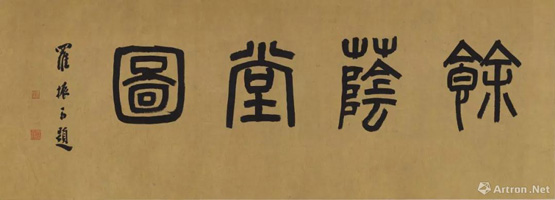 餘蔭堂圖
羅振玉題
Artron.Net